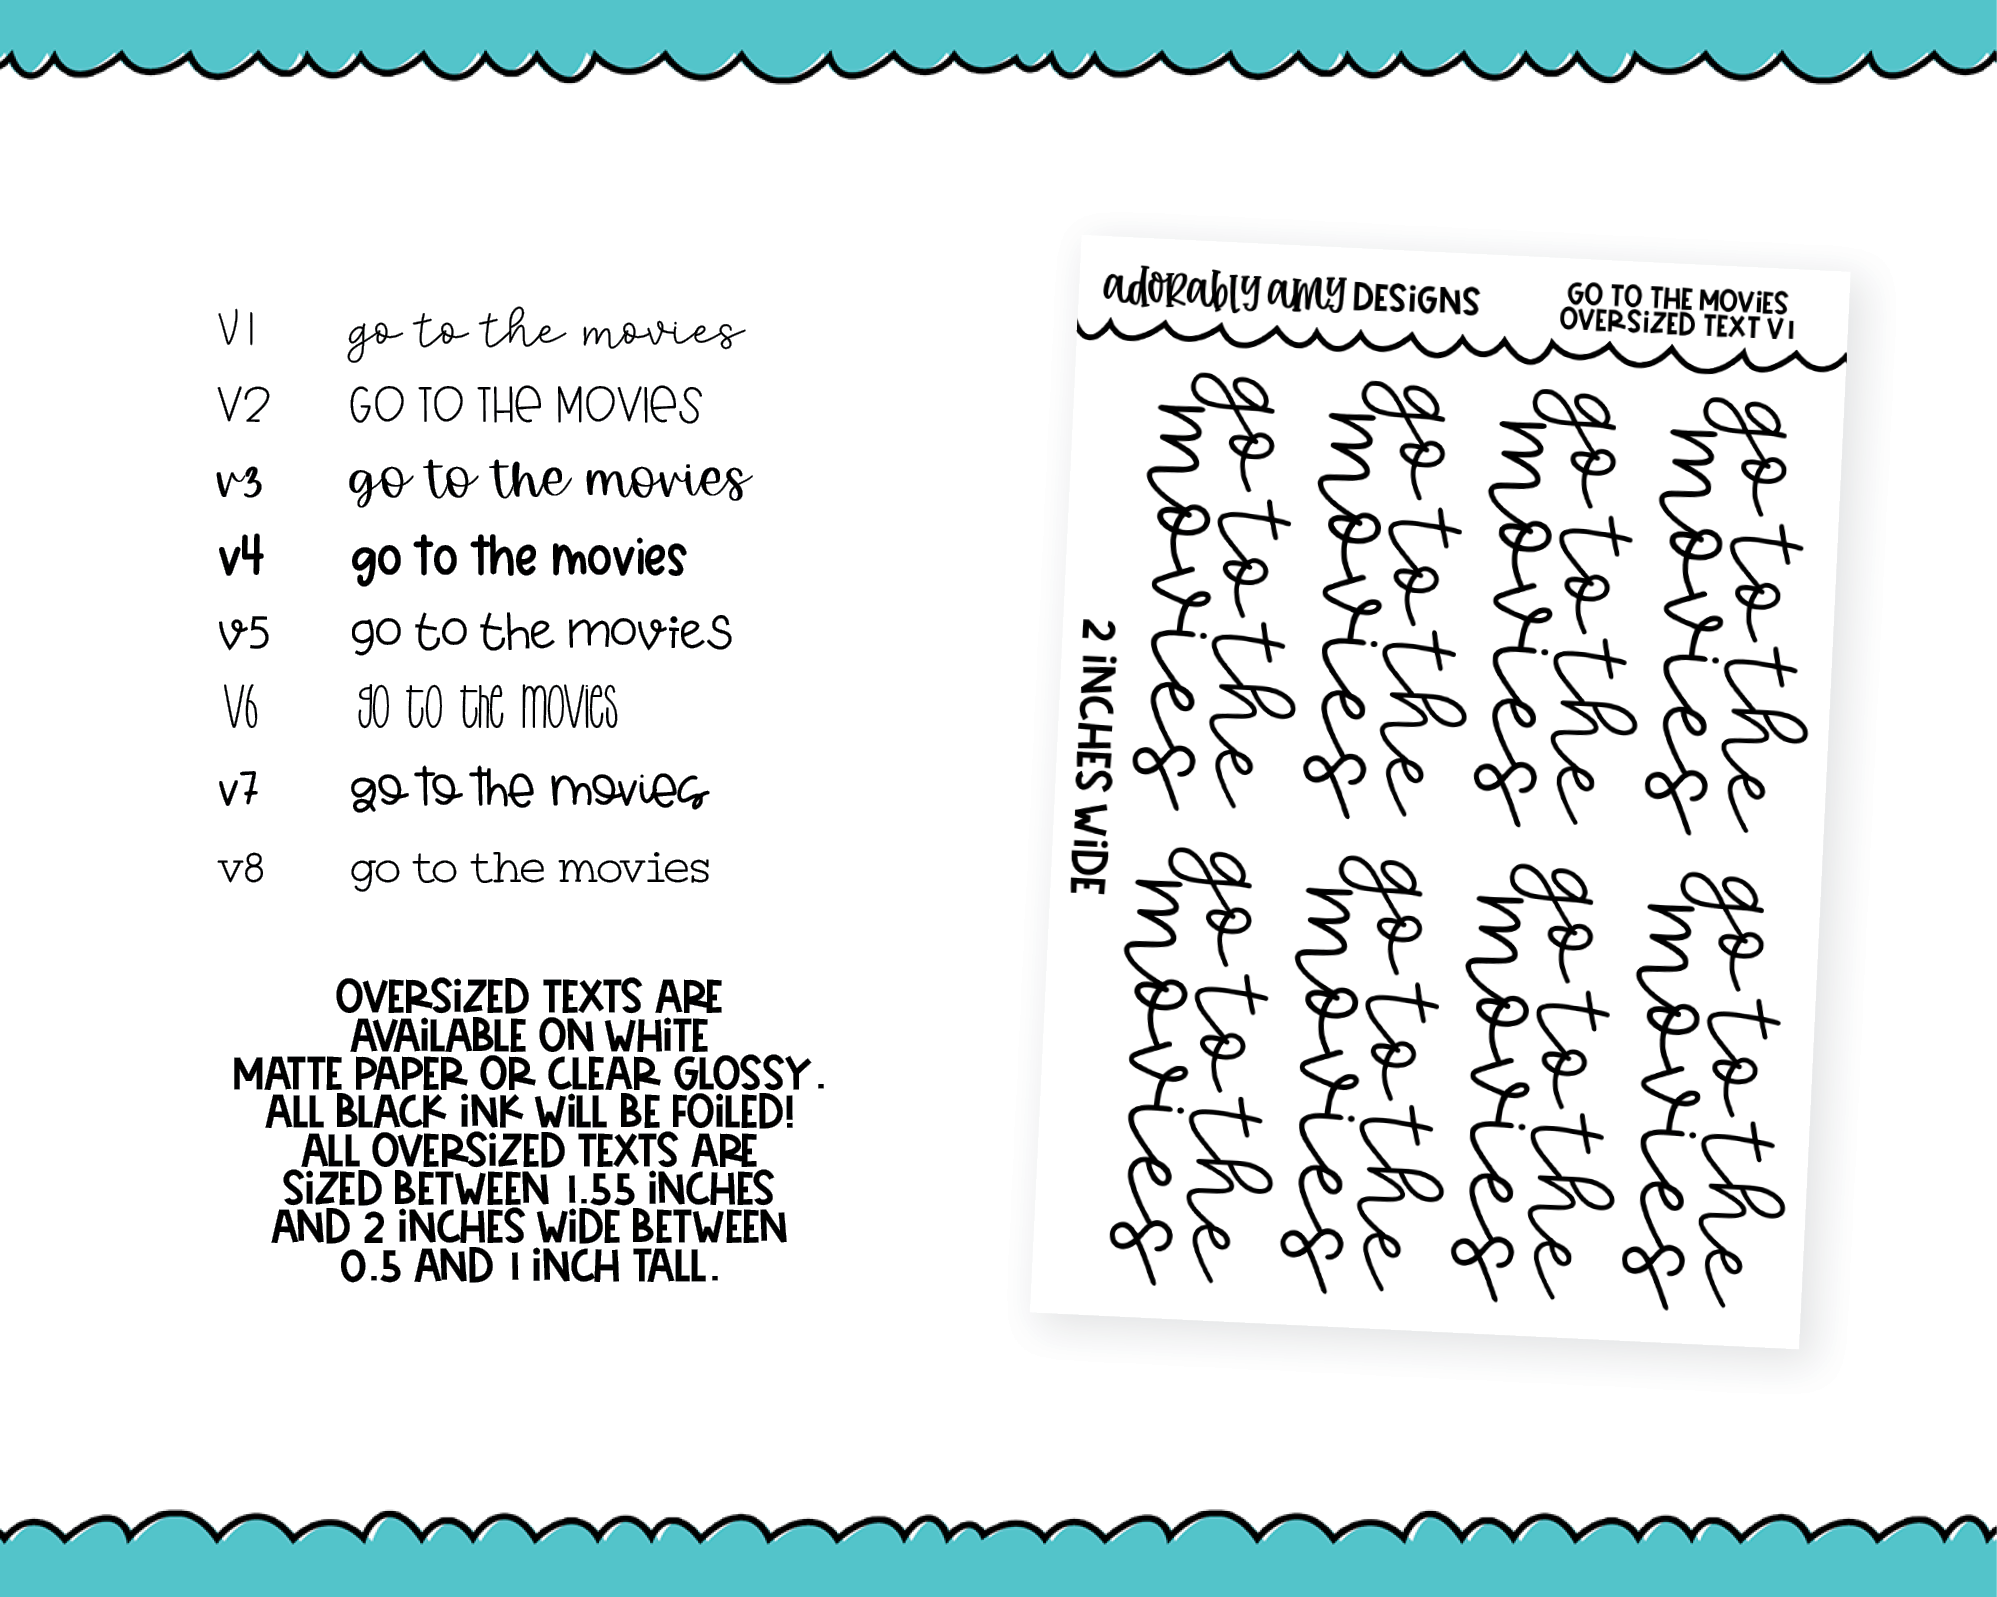 V1 go to the movies
V2 GO TO THe MOVIeS
v3 go to the movies
v4 go to the movies
v5 go to the movies
V6 go to the movies
v7 go to the movies
v8 go to the movies
OVERSiZED TEXTS ARE
AVAiLABLE ON WHiTE
MATTE PAPER OR CLEAR GLOSSY.
ALL BLACK iNK WiLL BE FOiLED!
ALL OVERSiZED TEXTS ARE
SiZED BETWEEN 1.55 iNCHES
AND 2 iNCHES WiDE BETWEEN
0.5 AND 1 iNCH TALL.
adoRably amy DESiGNS
GO TO THE MOViES
OVERSiZED TEXT V1
2 iNCHES WiDE
go to the
movies
go to the
movies
go to the
movies
go to the
movies
go to the
movies
go to the
movies
go to the
movies
go to the
movies